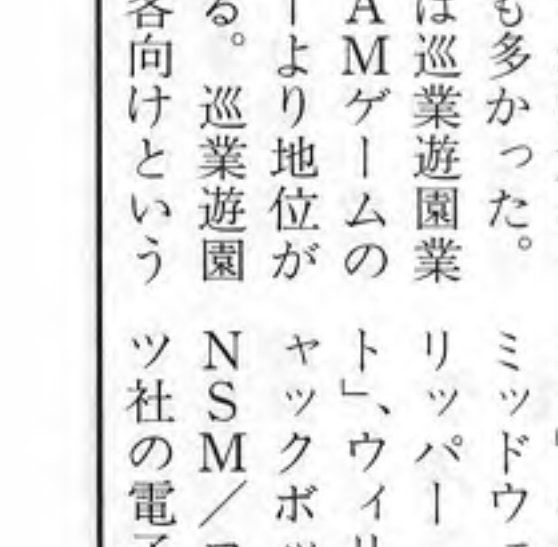 も多かった。
は巡業遊園業
AMゲームの
ーより地位が
る。巡業遊園
客向けという
ミッドウ
リッパー
ト」、ウィリ
ャックボッ
NSM/
ツ社の電子